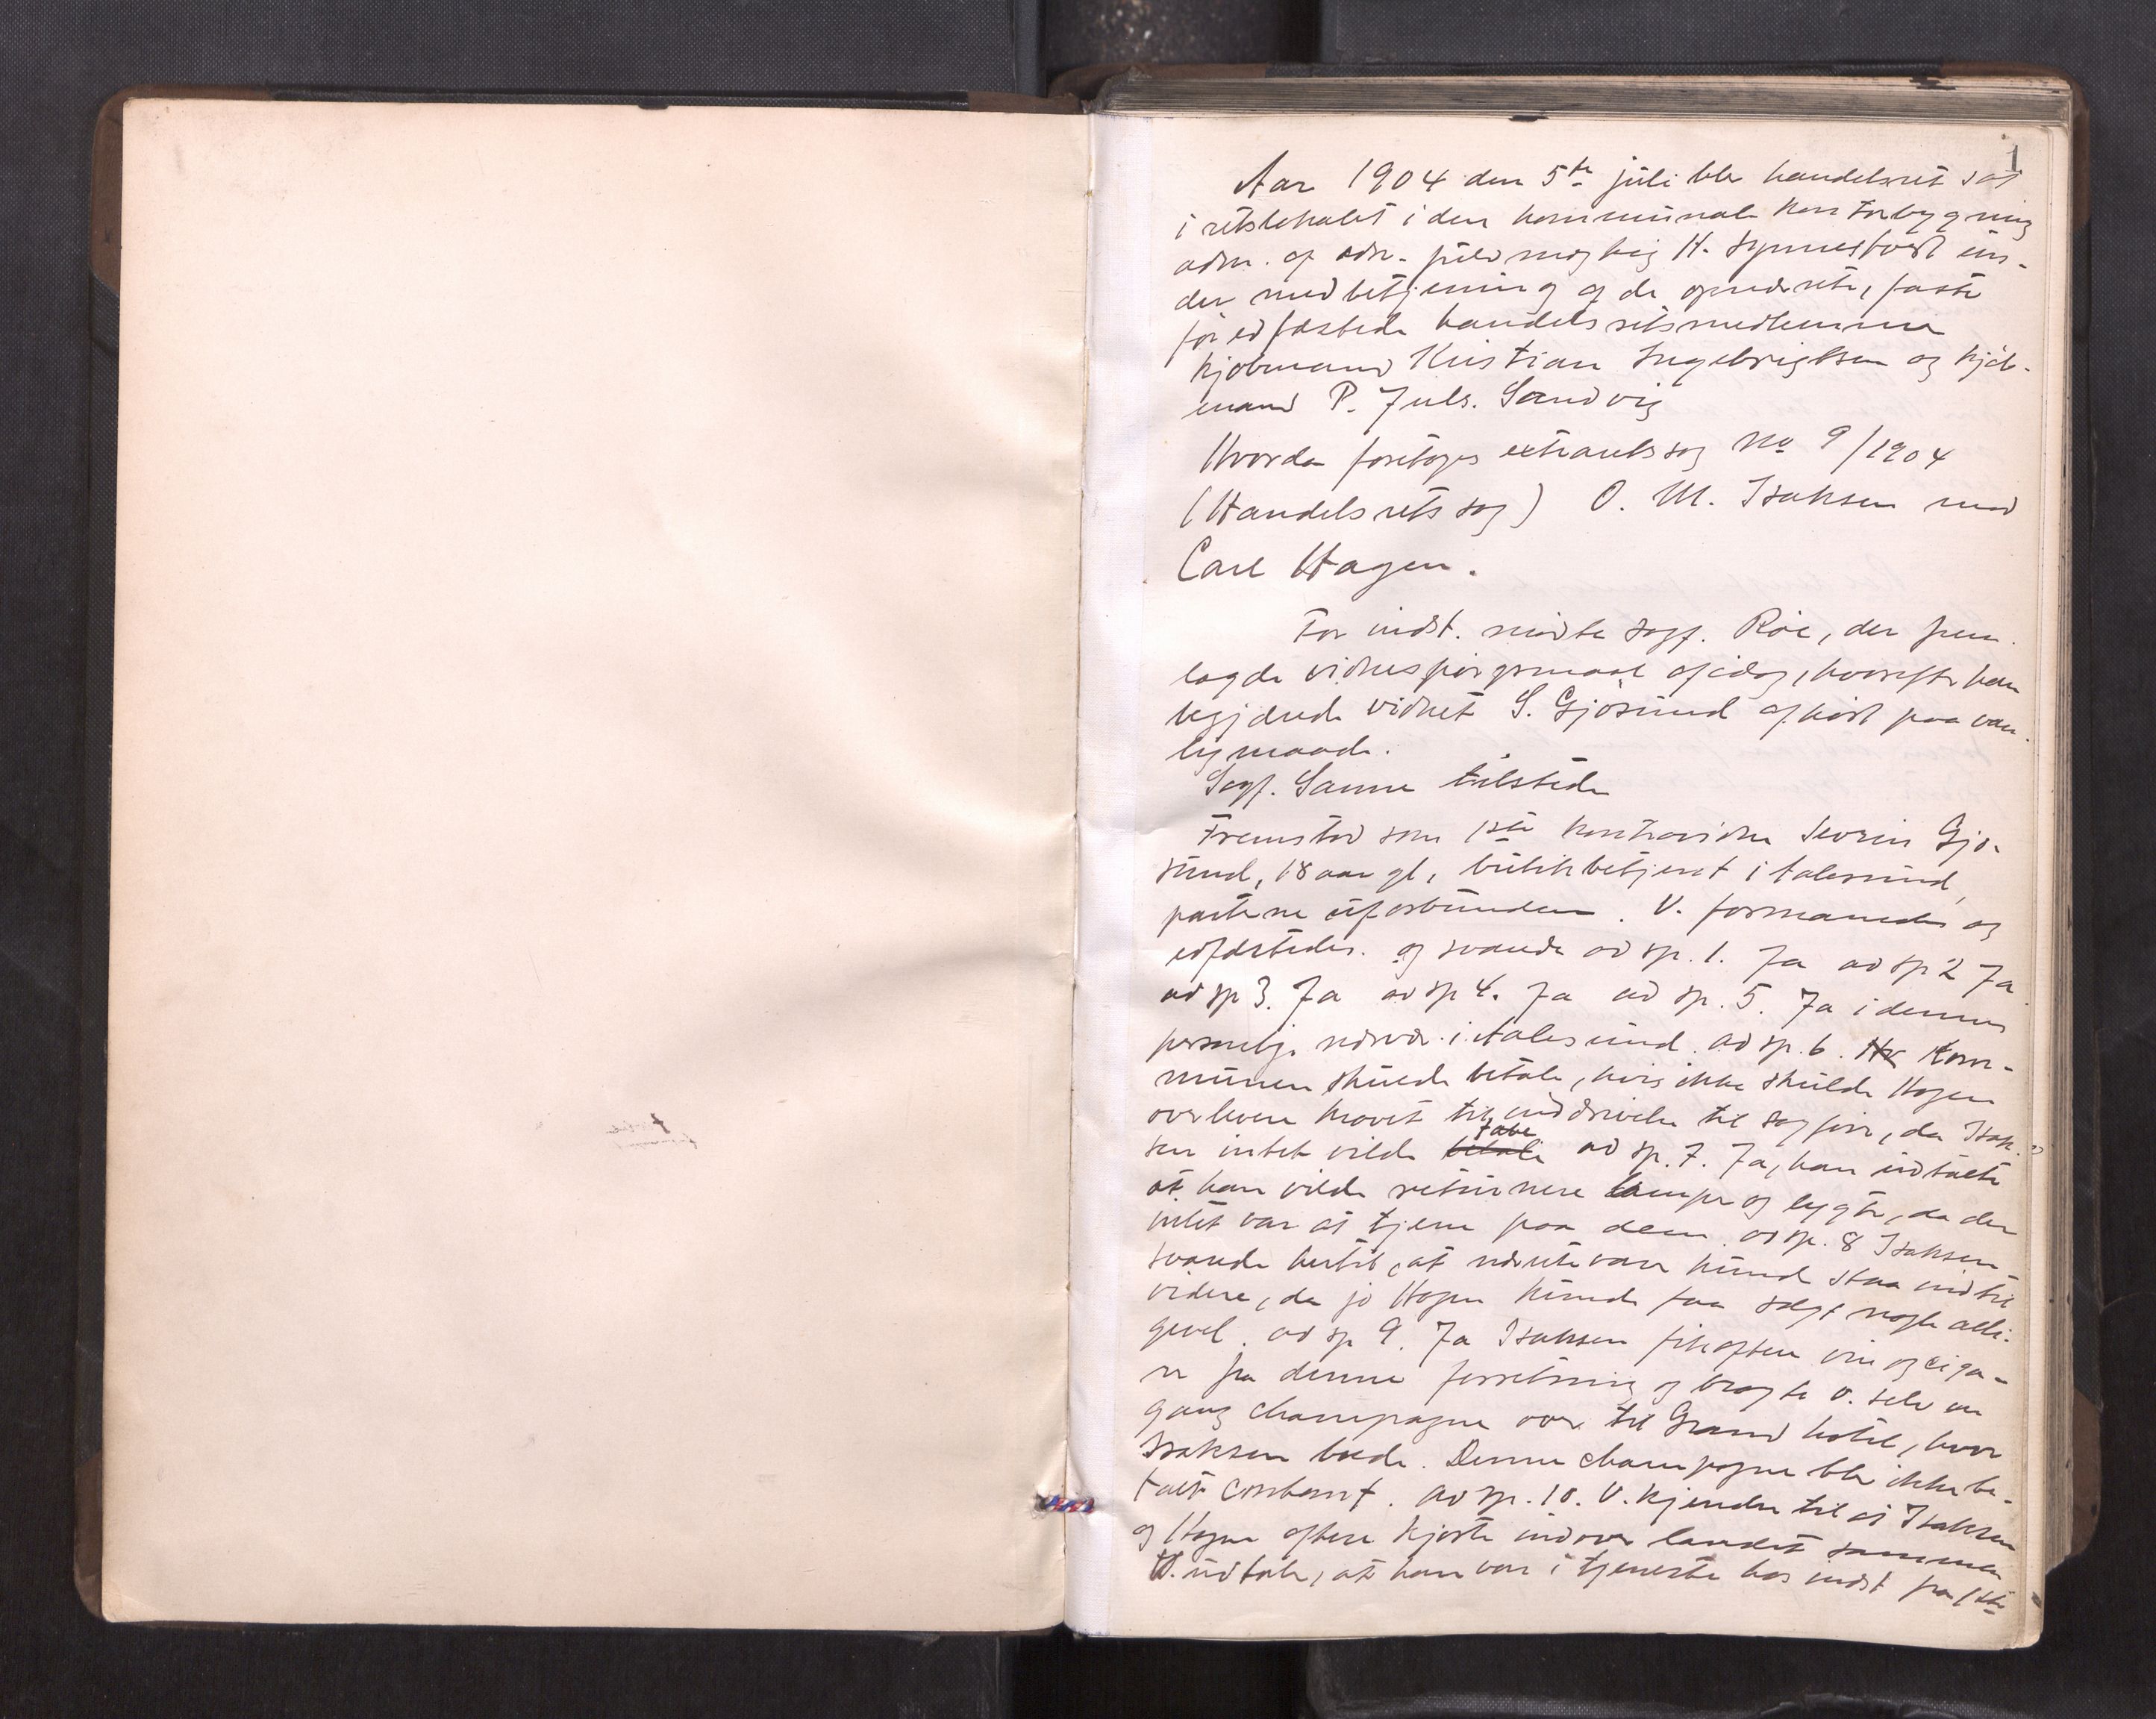 1
Aar 1904 den 5te juli blev handelsret sat
i retslokalet i den kommunale kontorbygning
adm. af edsv. fuldmægtig H. Synnestvedt un-
der medbetjening af de opnævnte, faste
før edfæstede handelsretsmedlemmer
kjøbmand Kristian Ingebrigtsen og kjøb-
mand P. Juls. Sandvig
Hvorda foretoges extraretssag No 9/1904
(Handelsretssag) O. M. Isaksen mod
Carl Hagen.
For indst. mødte sagf. Roie, der frem
lagde vidnespørgsmaal af idag, hvorefter han
begjærede vidnet S. Gjøsund afhørt paa van
lig maade.
Sagf. Sanne tilstede
Fremstod som 1ste kontravidne Severin Gjø-
sund, 18 aar gl, butikbetjent i Aalesund,
parterne uforbunden. V. formanedes og
edfæstedes. og svarede ad sp. 1. Ja ad sp 2 Ja
ad sp 3. Ja ad sp 4. Ja ad sp. 5. Ja i dennes
personlige nærvær i Aalesund. ad sp. 6. Kom-
munen skulde betale, hvis ikke skulde Hagen
overlevere kravet til inddrivelse til sagfører, da Isak-
sen intet vilde betale tabe ad sp. 7. Ja, han udtalte
at han vilde returnere lamper og lygter, da der
intet var at tjene paa dem. ad sp. 8 Isaksen
svarede hertil, at nævnte varer kunde staa indtil
videre, da jo Hagen kunde faa solgt nogle alli-
gevel. ad sp 9. Ja Isaksen fik oftere vin og ciga-
rer fra denne forretning og bragte v. selv en
gang champagne over til Grand hotel, hvor
Isaksen boede. Denne champagne blev ikke be-
talt contant. ad sp. 10. V. kjender til at Isaksen
og Hagen oftere kjørte indover landet sammen
V. udtaler, at han var i tjeneste hos indst fra 1ste